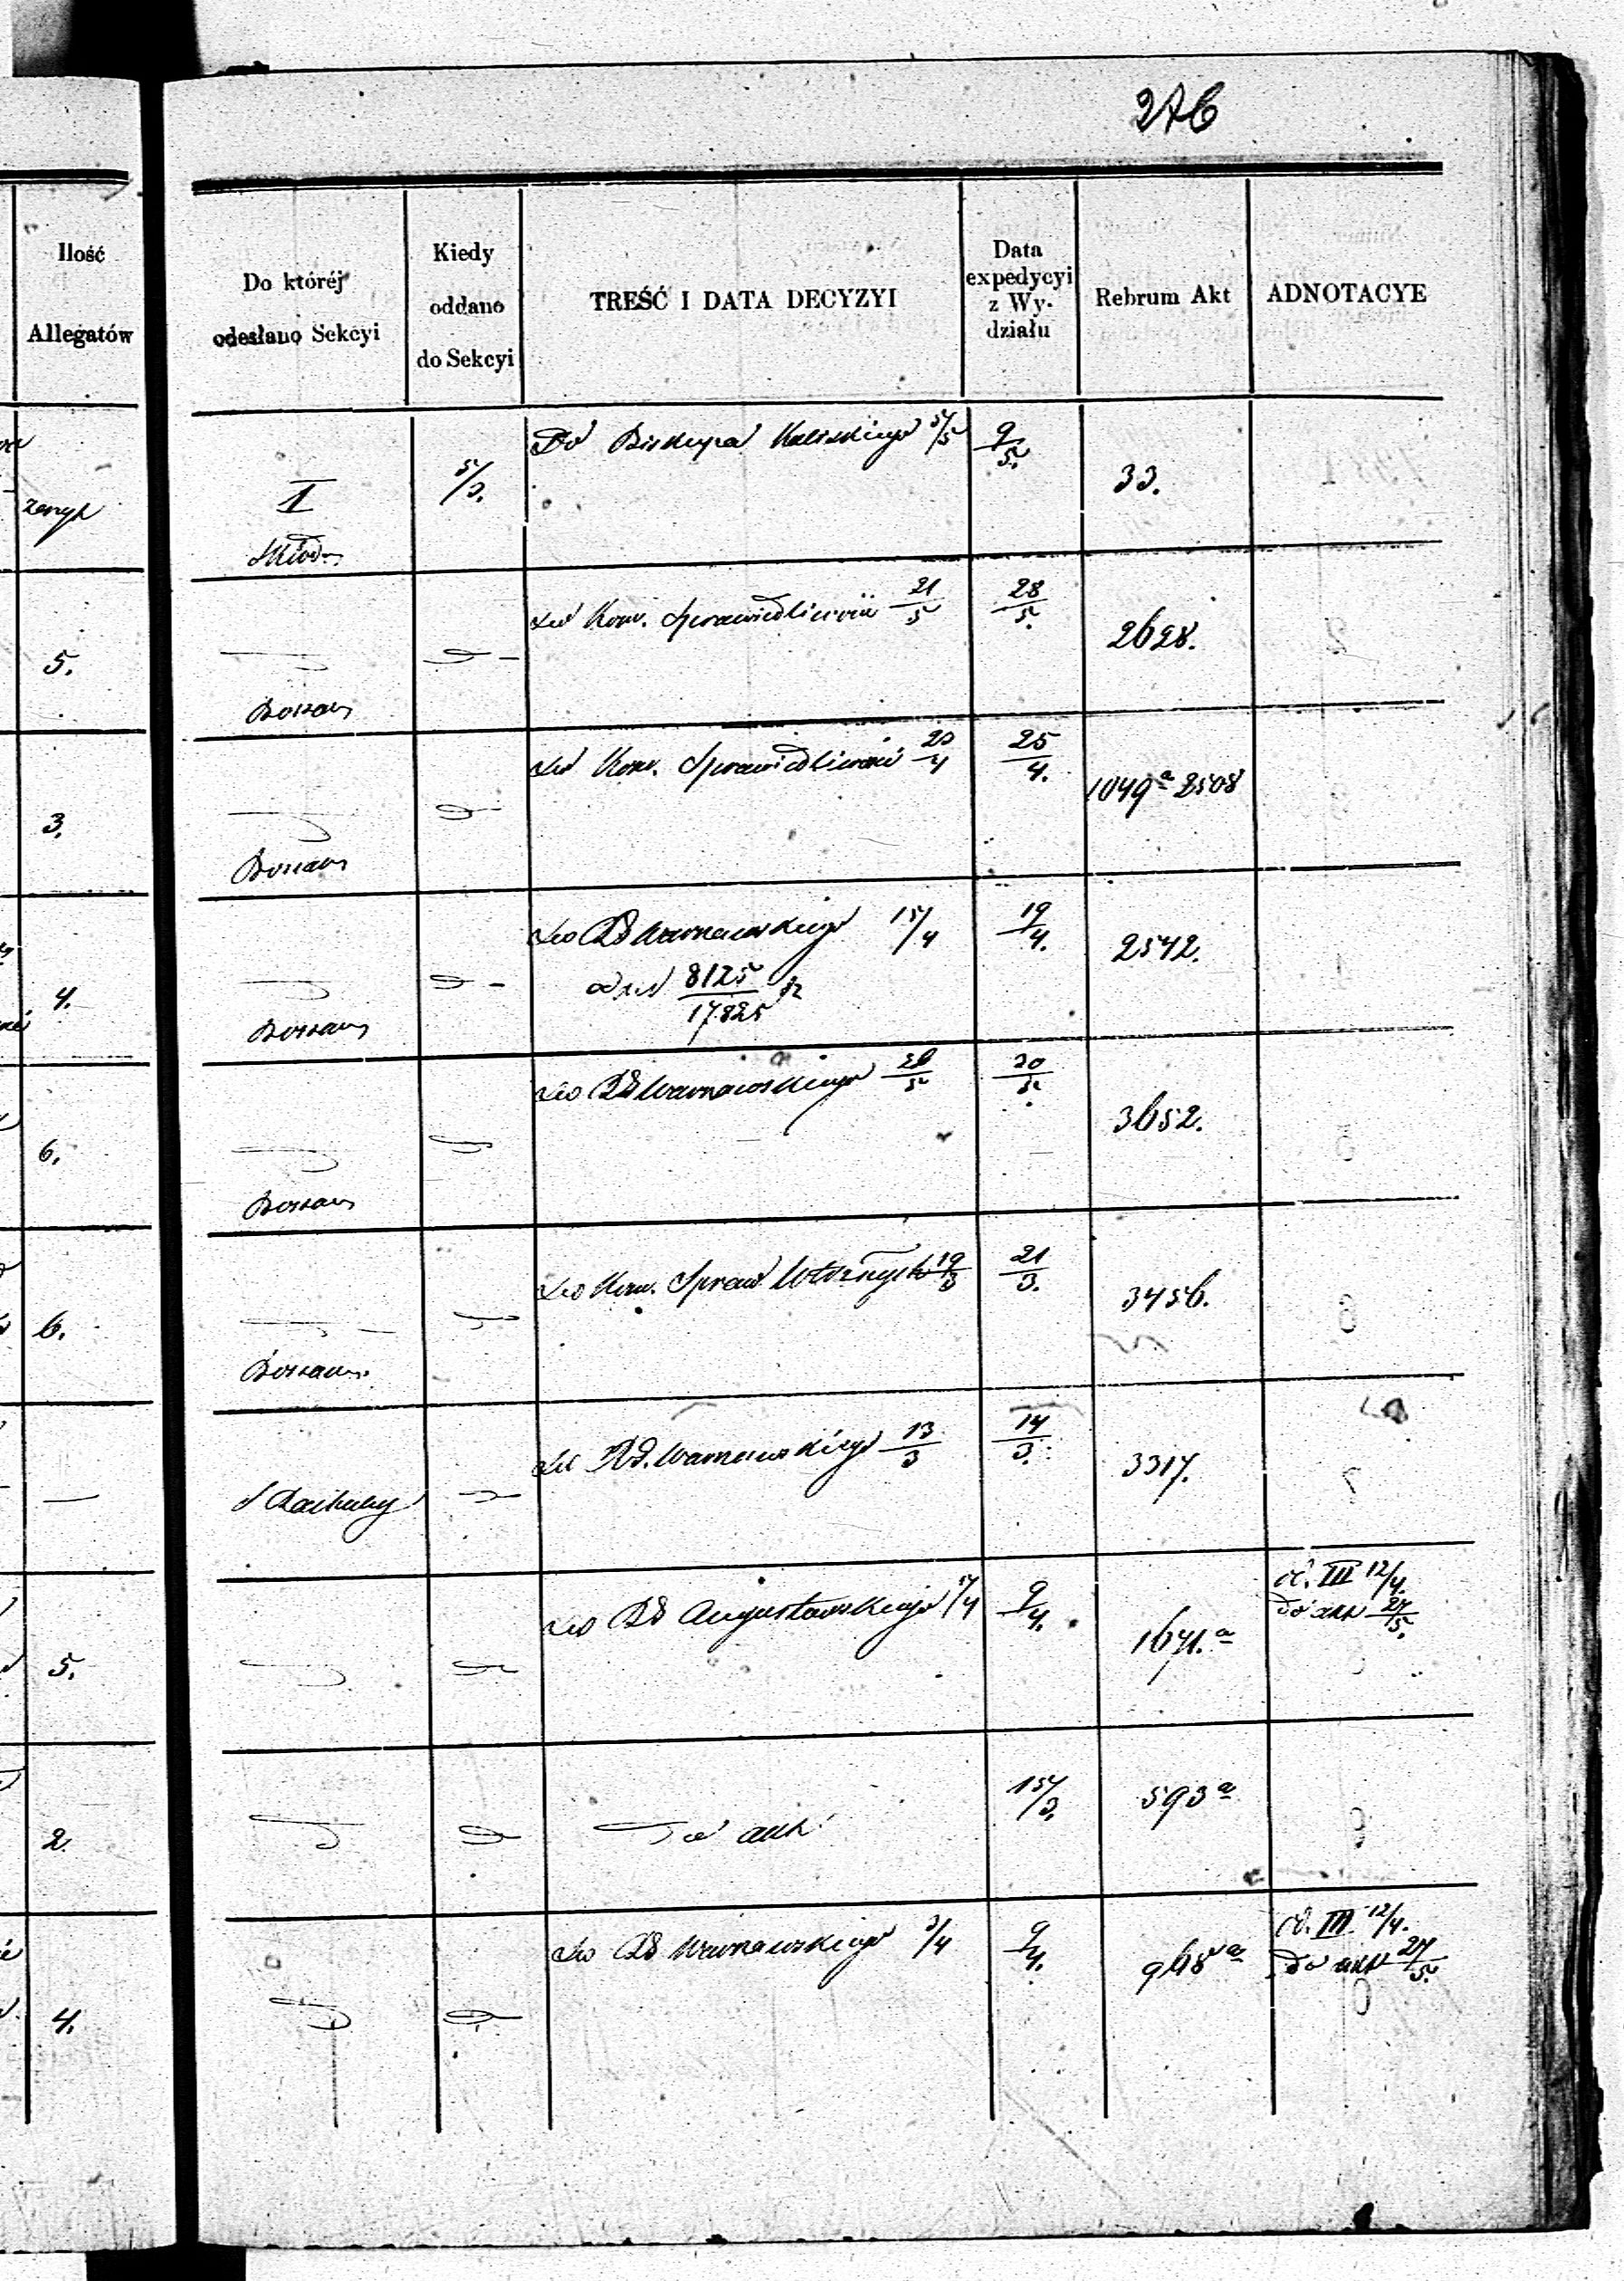 276
Ilość
Allegatów
Do któréj
odesłano Sekcyi
Kiedy
oddano
do Sekcyi
TREŚĆ I DATA DECYZYI
Data
expedycyi
z Wy-
działu
Rebrum Akt
ADNOTACYE
I
5/3.
Do Biskupa Kaliskiego 5/5
9/5.
33.
5.
Do Kom. Sprawiedliwości 21/5
28/5.
2628.
3.
Do Kom. Sprawiedliwości 20/4
25/4.
1049a 2508
4.
Do RG Warszawskiego 15/4
19/4.
2542.
8125/17825
6.
Do RG Warszawskiego
30/5
3652.
6.
Do Kom. Spraw Wewnętrznych 19/3
21/3.
3456.
—
Do RG. Warszawskiego 13/3
14/3.
3317.
5.
Do RG Augustowskiego 5/4
9/4.
1671.a
III 12/4.
do akt 27/5.
2.
do akt
15/3.
593a
4.
Do RG Warszawskiego 3/4
9/4.
968a
III 12/4.
do akt 27/5.